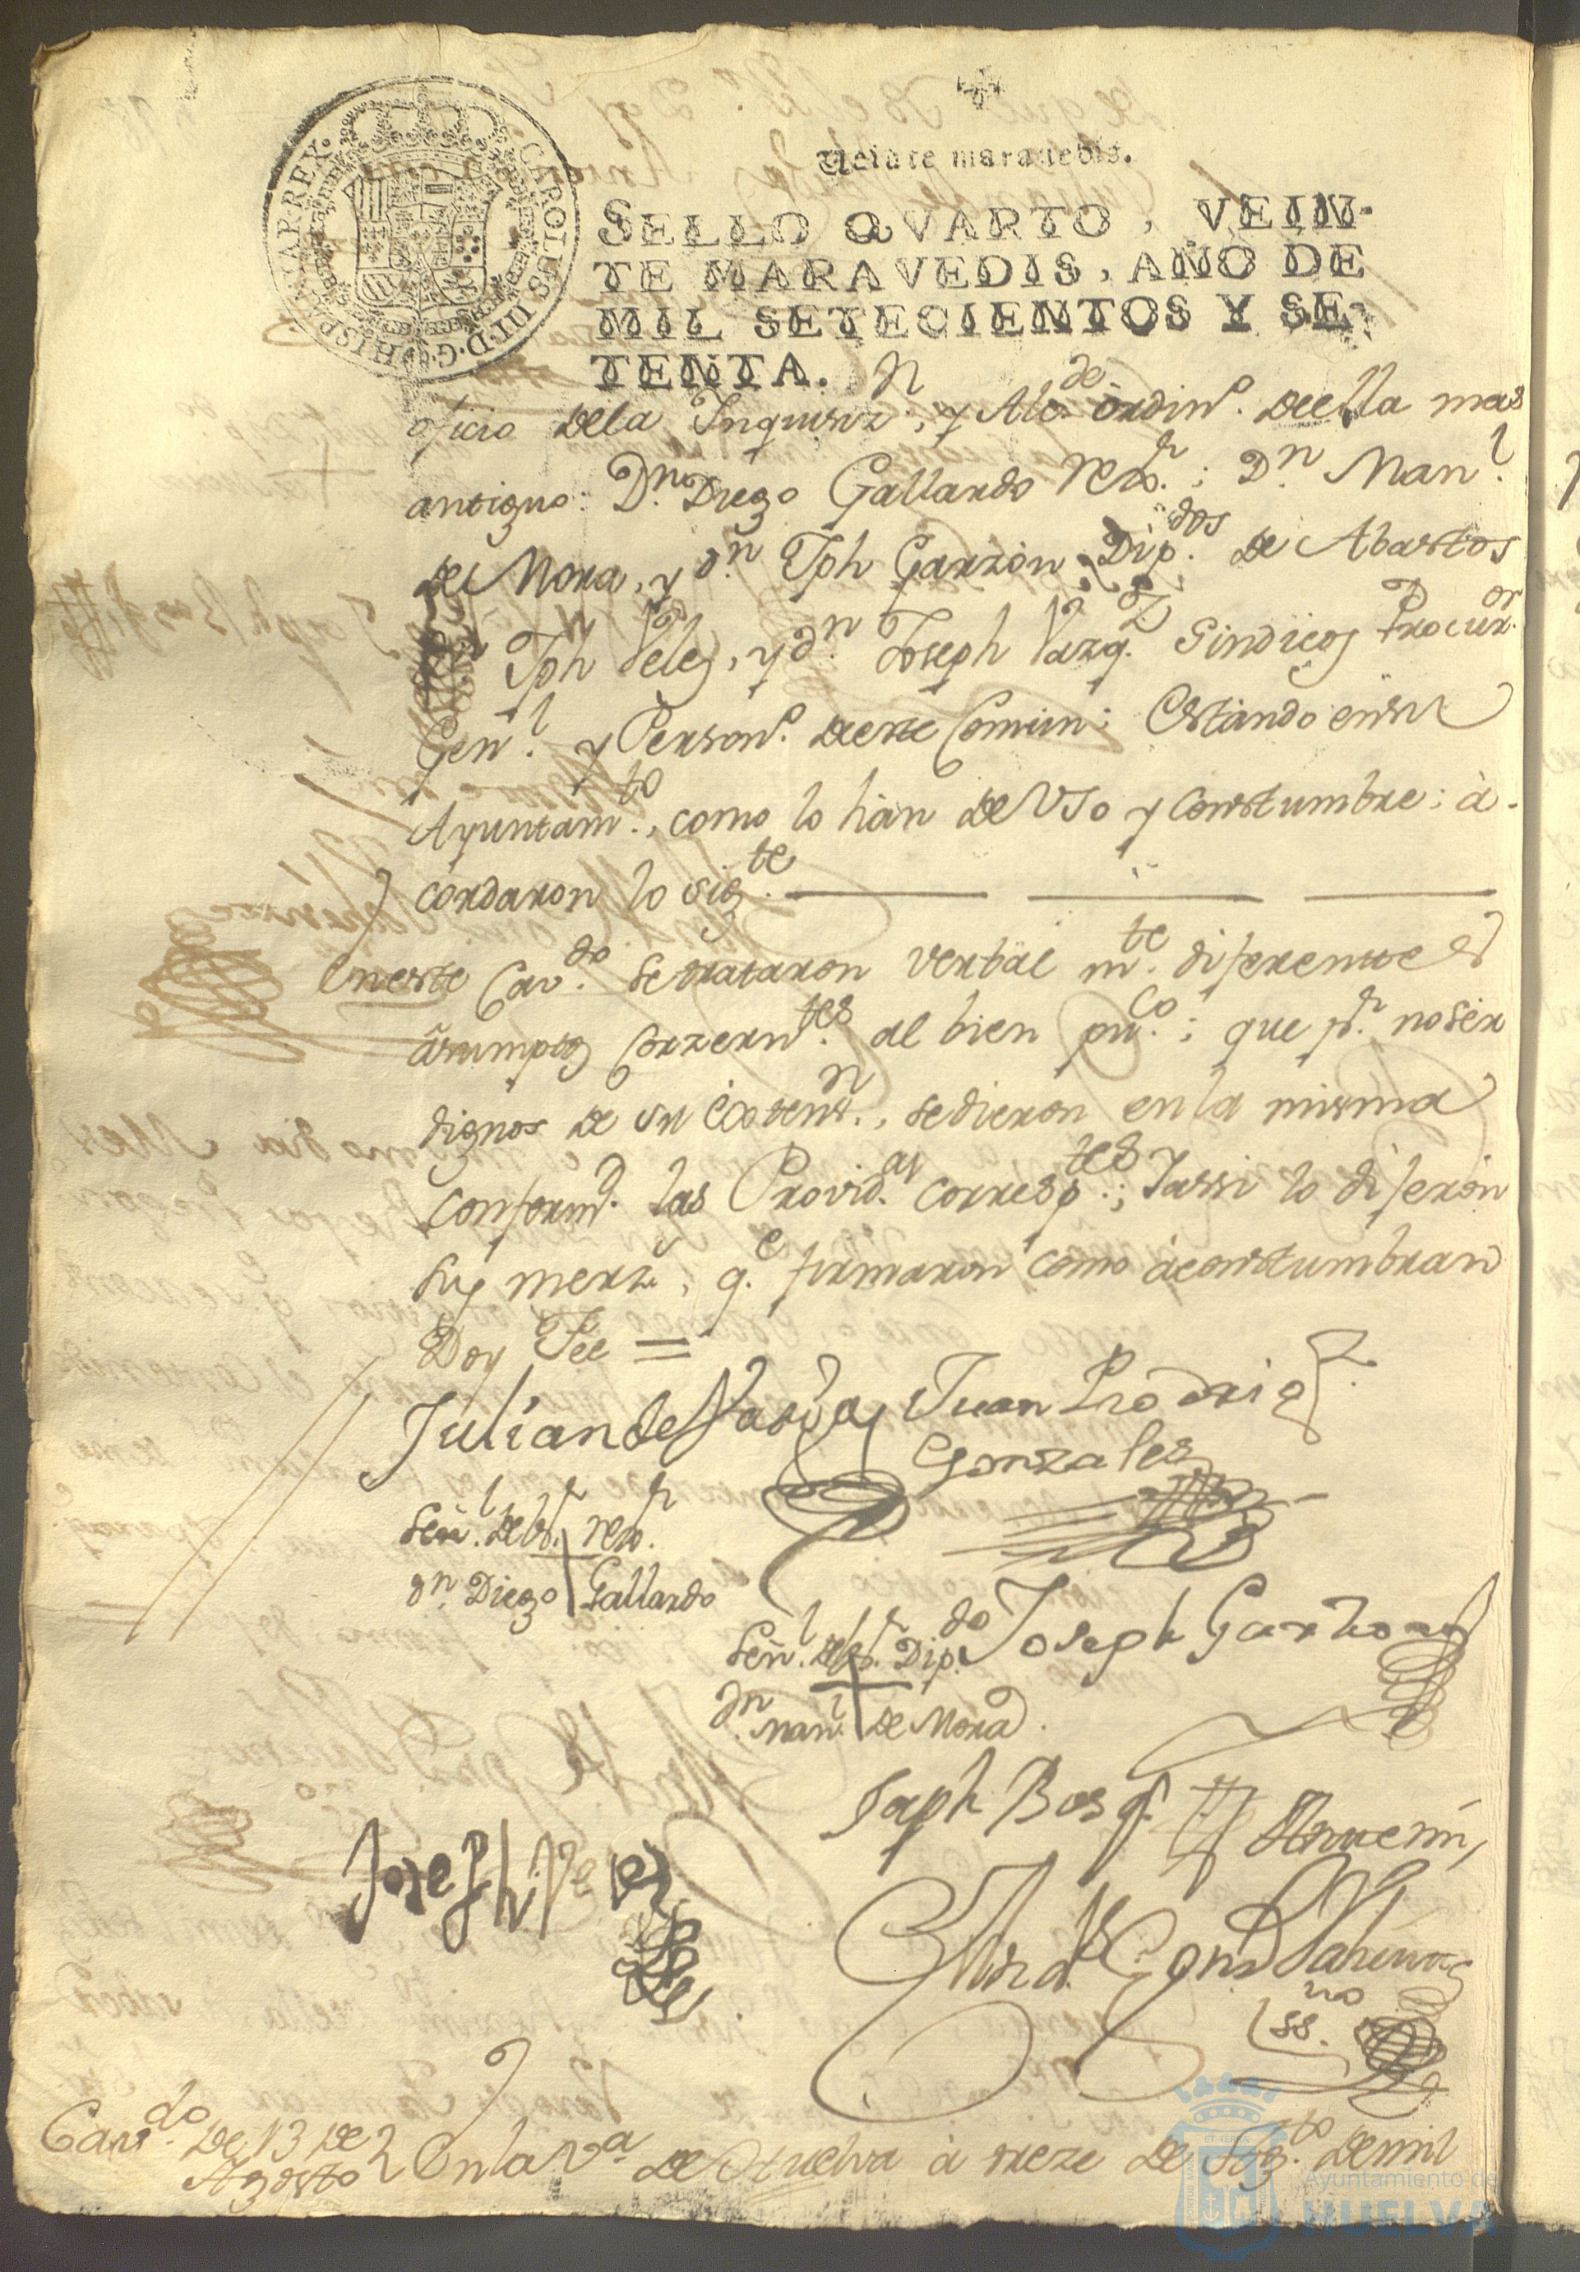 CAROLUS III D. G. HISPANIAR. REX.
Veinte maravedis.
SELLO QVARTO, VEIN-
TE MARAVEDIS, AÑO DE
MIL SETECIENTOS Y SE-
TENTA.
oficio dela Inquisizn., y Alcde. òrdino. deella mas
antiguo: Dn. Diego Gallardo rexor.; Dn. Manl.
de Mora, y dn. Jph Garzòn Dipdos. de Abastos
Jph Velez, y dn. Joseph Vazqz. Sindicos Procuror.
Genl. y Persono. deeste Comun; Estando ensu
Ayuntamto., como lo hàn de Vso y Constumbre: à-
cordaron lo sigte.
Eneste Cavdo. setrataron verbal mte. diferenttes
àsumptos Conzerntes. al bien puco.; que pr. no sèr
dignos de su Extensn., sedieron en la misma
Conformd. las Providas. corresptes.; Yassi lo dijeròn
sus merzs., qe. firmaron como àconstumbran
Doy Fee =
Julian de Juan Rodrigz.
Gonzales
Señl. del sr. rexr.
dn. Diego Gallardo
Señl. del sr. Dipdo. Joseph Garzon
dn. Manl. de Mora.
Joseph Velez
Antemi,
ssno.
Cavdo. de 13 de
Agosto
En la Va. de Huelva à treze de Agto. demil
Ayuntamiento de
HUELVA